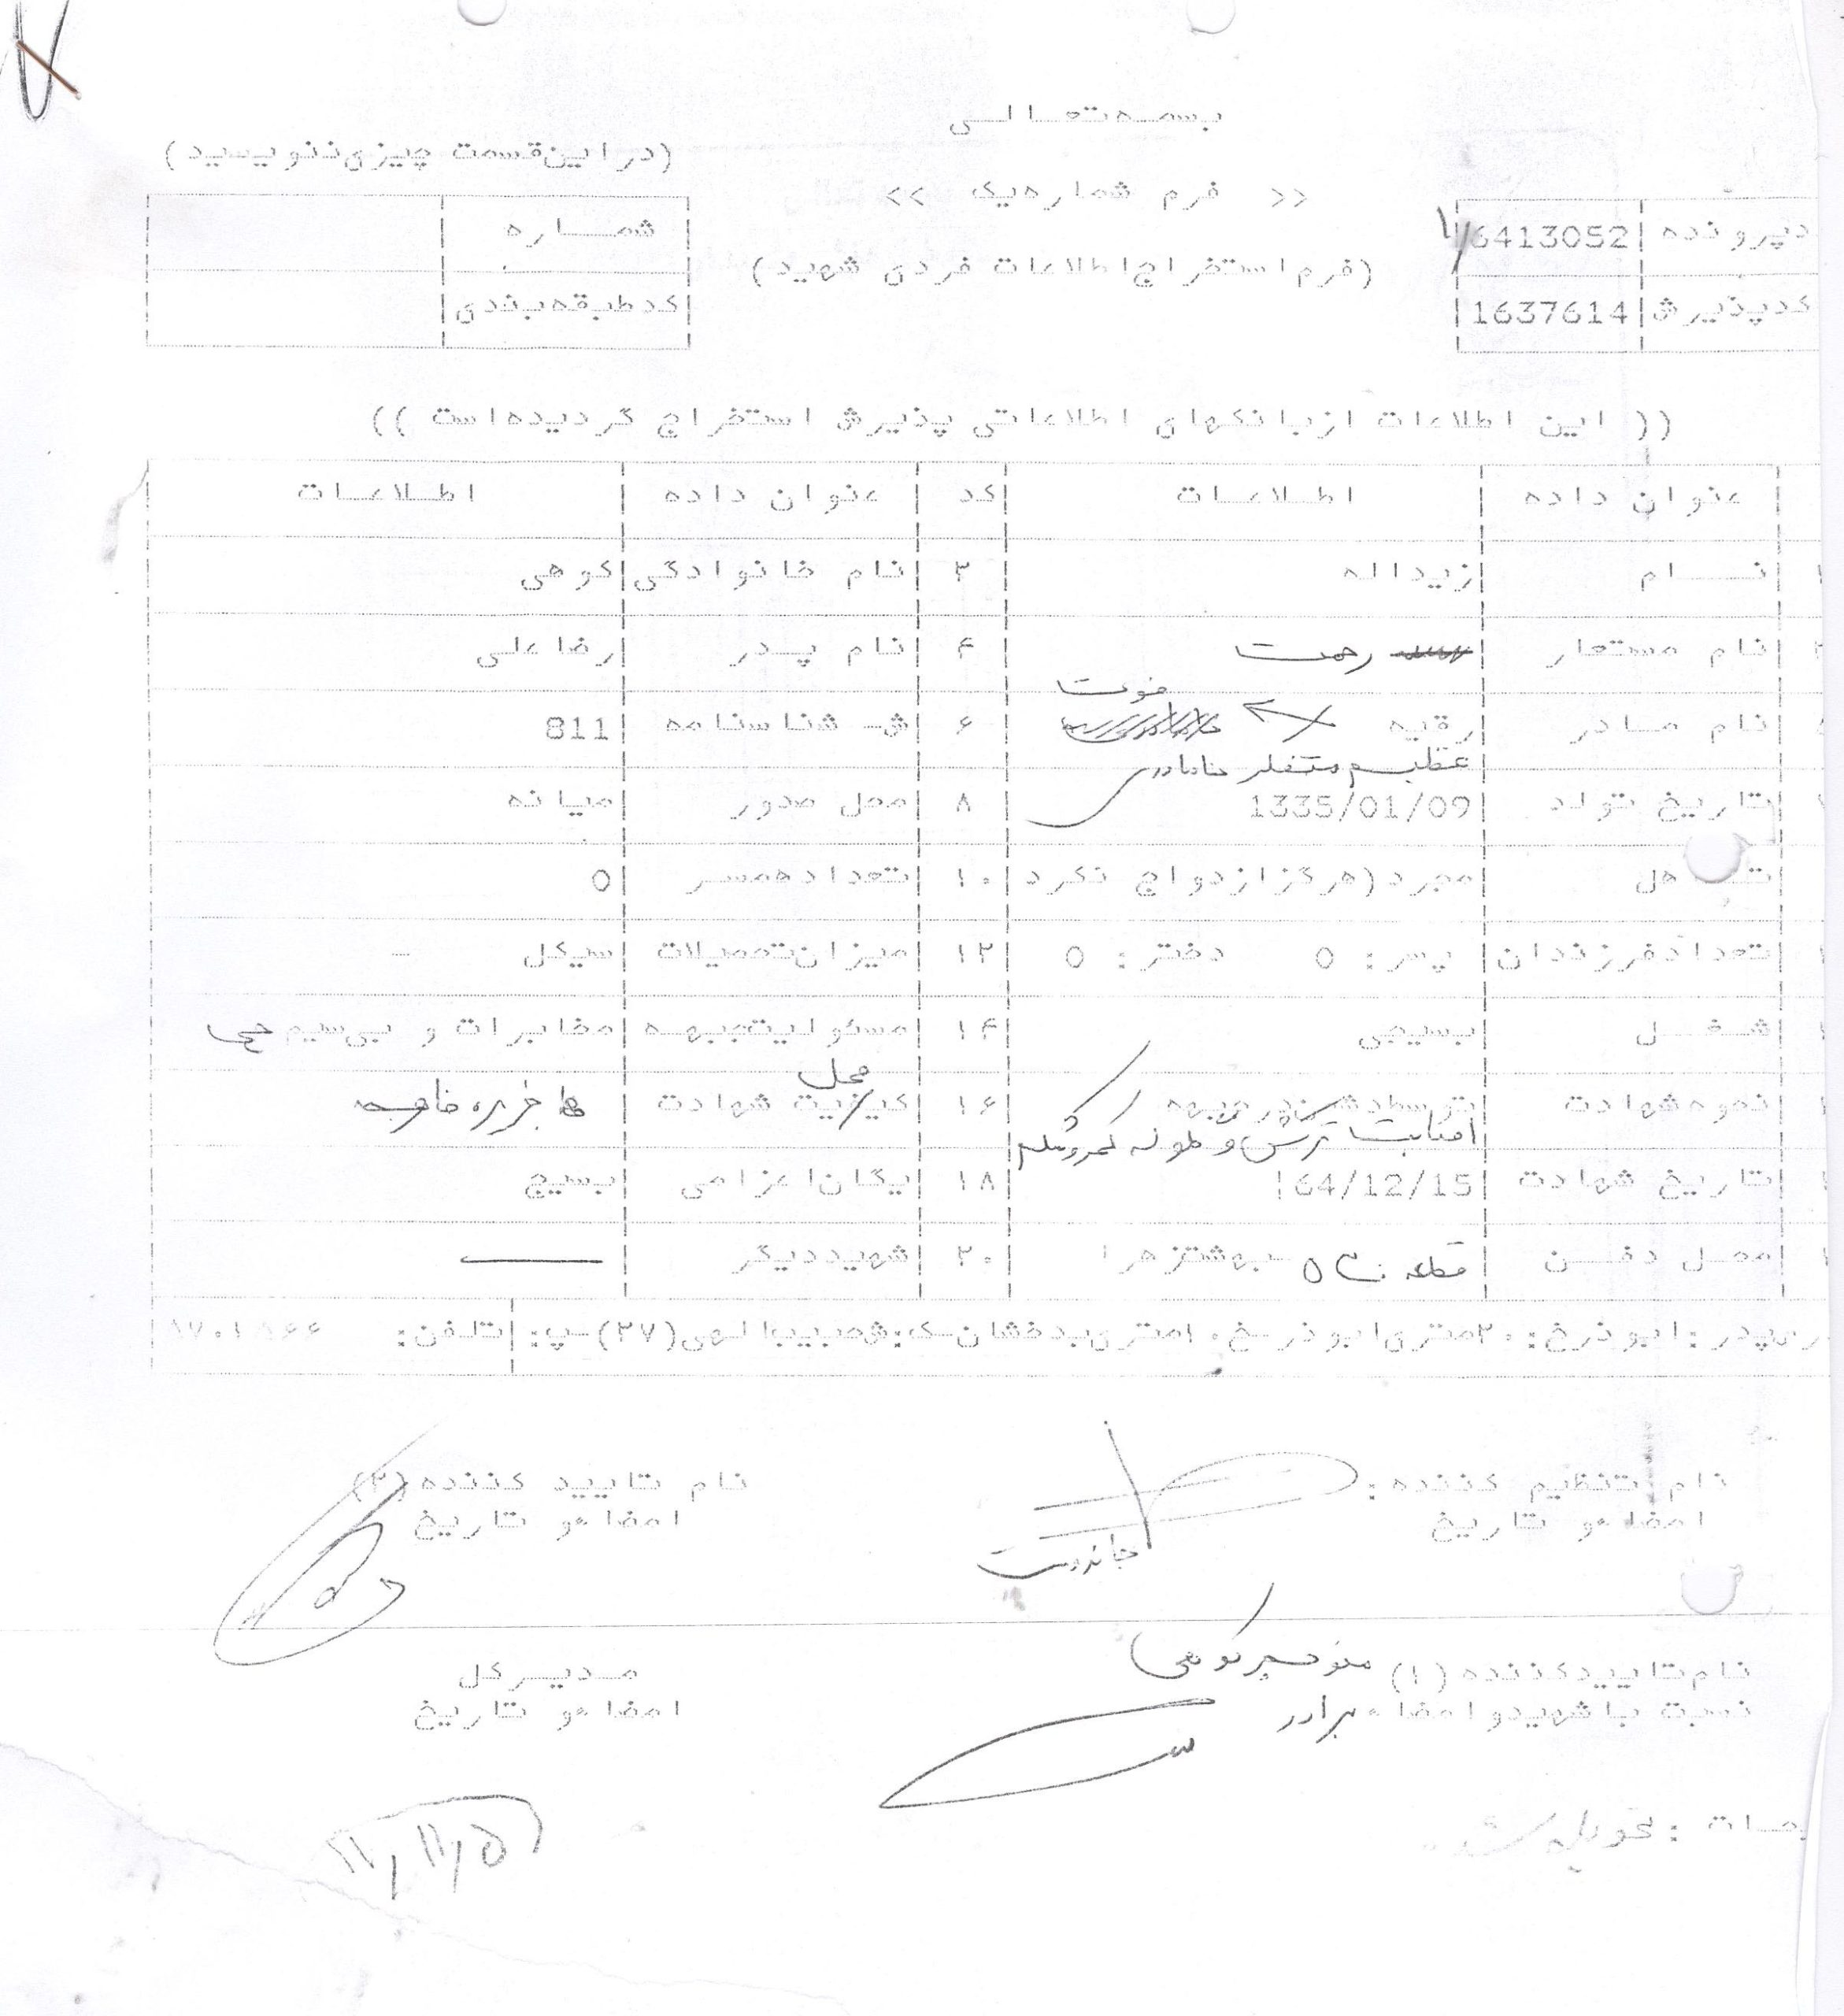 بسمه‌تعالی
(دراین‌قسمت چیزی‌ننویسید)
<< فرم شماره‌یک >>
(فرم‌استخراج‌اطلاعات فردی شهید)
دپرونده 6413052
کدپذیرش 1637614
شماره
کدطبقه‌بندی
(( این اطلاعات ازبانکهای اطلاعاتی پذیرش استخراج گردیده‌است ))
عنوان داده اطلاعات کد عنوان داده اطلاعات
نام زیداله ۲ نام خانوادگی کوهی
نام مستعار رحمت ۴ نام پدر رضاعلی
فوت
نام مادر رقیه ۶ ش- شناسنامه 811
عظیم
تاریخ تولد 1335/01/09 ۸ محل صدور میانه
تاهل مجرد(هرگزازدواج نکرد ۱۰ تعدادهمسر 0
تعدادفرزندان پسر: 0 دختر: 0 ۱۲ میزان‌تحصیلات سیکل -
شغل بسیجی ۱۴ مسئولیت‌جبهه مخابرات و بی‌سیم‌چی
محل
نحوه‌شهادت توسطدشمن‌درجبهه ۱۶ کیفیت شهادت
اصابت ترکش و
تاریخ شهادت 64/12/15 ۱۸ یگان‌اعزامی بسیج
محل دفن قطعه ۵۳ بهشتزهرا ۲۰ شهیددیگر —
پدر:ابوذرخ:۲۰متری‌ابوذر-خ۱۰متری‌بدخشان-ک:ش‌حبیب‌الهی(۲۷)-پ: تلفن:
نام تنظیم کننده:
امضاءو تاریخ
جاندوست
نام تایید کننده(۲)
امضاءو تاریخ
نام‌تاییدکننده(۱) منوچهر کوهی
نسبت باشهیدوامضاء برادر
مدیرکل
امضاءو تاریخ
تحویل شد